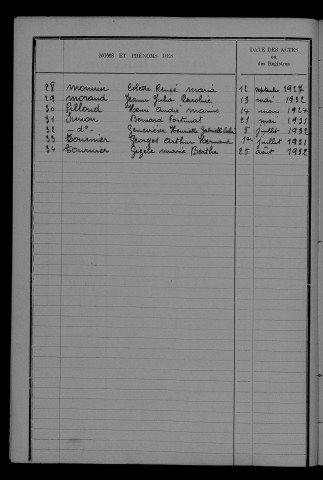 NOMS ET PRÉNOMS DES
DATE DES ACTES
ou
des Registres
28 Monnin Colette Renée Maria 12 septembre 1927
29 Morand Jeanne Julia Caroline 13 mai 1932
30 Pilloud Henri André Marius 14 mars 1924
31 Simon Bernard Fortunat 21 mai 1931
32 -d°- Geneviève Henriette Gabrielle 5 juillet 1932
33 Tournier Georges Arthur Fernand 1er juillet 1931
34 Tournier Gizèle Marie Berthe 25 août 1932